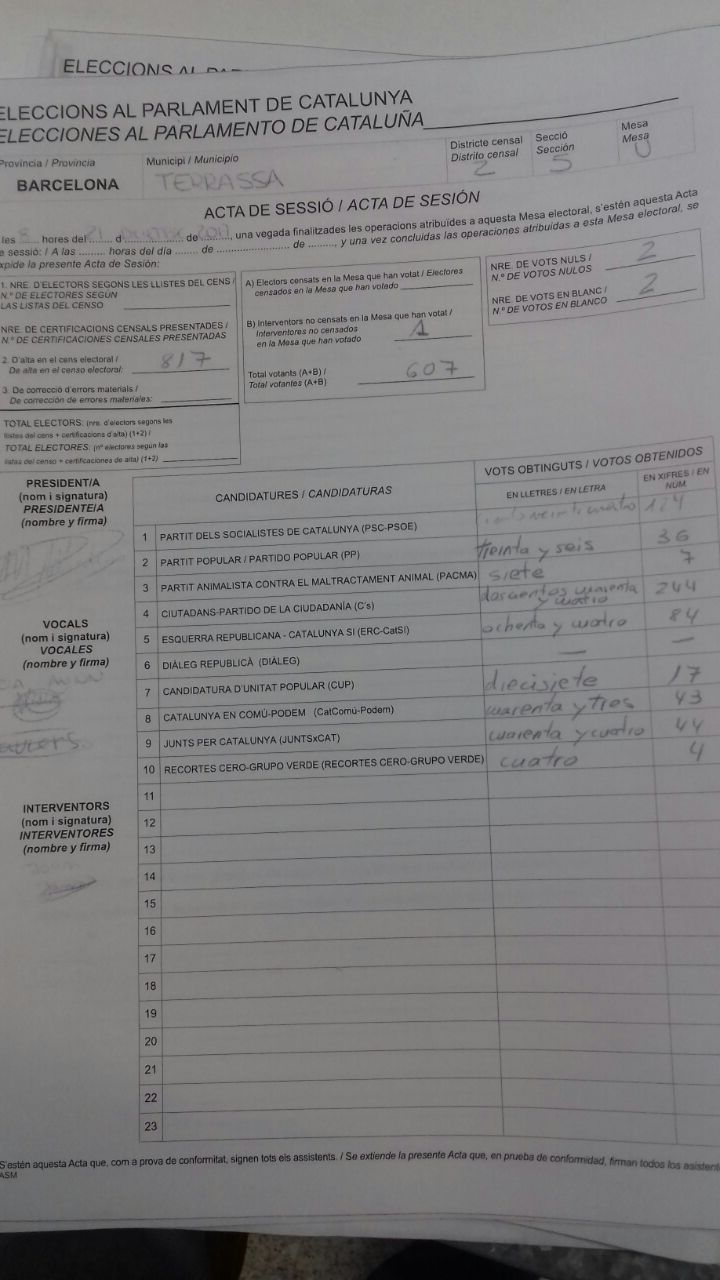 ELECCIONS AL PAR
ELECCIONS AL PARLAMENT DE CATALUNYA
ELECCIONES AL PARLAMENTO DE CATALUÑA
Província / Provincia
Municipi / Municipio
Districte censal
Distrito censal
2
Secció
Sección
5
Mesa
Mesa
U
BARCELONA
TERRASSA
ACTA DE SESSIÓ / ACTA DE SESIÓN
les 8 hores del 21 d de 2017, una vegada finalitzades les operacions atribuïdes a aquesta Mesa electoral, s'estén aquesta Acta
e sessió: / A las ........ horas del día ........ de ........................ de ........, y una vez concluidas las operaciones atribuidas a esta Mesa electoral, se
xpide la presente Acta de Sesión:
1. NRE. D'ELECTORS SEGONS LES LLISTES DEL CENS /
N.º DE ELECTORES SEGÚN
LAS LISTAS DEL CENSO
NRE. DE CERTIFICACIONS CENSALS PRESENTADES /
N.º DE CERTIFICACIONES CENSALES PRESENTADAS
2. D'alta en el cens electoral /
De alta en el censo electoral: 817
3. De correcció d'errors materials /
De corrección de errores materiales:
TOTAL ELECTORS: (nre. d'electors segons les
llistes del cens + certificacions d'alta) (1+2) /
TOTAL ELECTORES: (nº electores según las
listas del censo + certificaciones de alta) (1+2)
A) Electors censats en la Mesa que han votat / Electores
censados en la Mesa que han votado
B) Interventors no censats en la Mesa que han votat /
Interventores no censados
en la Mesa que han votado 1
Total votants (A+B) /
Total votantes (A+B) 607
NRE. DE VOTS NULS /
N.º DE VOTOS NULOS 2
NRE. DE VOTS EN BLANC /
N.º DE VOTOS EN BLANCO 2
PRESIDENT/A
(nom i signatura)
PRESIDENTE/A
(nombre y firma)
VOCALS
(nom i signatura)
VOCALES
(nombre y firma)
INTERVENTORS
(nom i signatura)
INTERVENTORES
(nombre y firma)
CANDIDATURES / CANDIDATURAS
VOTS OBTINGUTS / VOTOS OBTENIDOS
EN LLETRES / EN LETRA
EN XIFRES / EN
NÚM
1 PARTIT DELS SOCIALISTES DE CATALUNYA (PSC-PSOE) 124
2 PARTIT POPULAR / PARTIDO POPULAR (PP) treinta y seis 36
3 PARTIT ANIMALISTA CONTRA EL MALTRACTAMENT ANIMAL (PACMA) siete 7
4 CIUTADANS-PARTIDO DE LA CIUDADANÍA (C's) doscuentos cuarenta y cuatro 244
5 ESQUERRA REPUBLICANA - CATALUNYA SÍ (ERC-CatSí) ochenta y cuatro 84
6 DIÀLEG REPUBLICÀ (DIÀLEG) — —
7 CANDIDATURA D'UNITAT POPULAR (CUP) diecisiete 17
8 CATALUNYA EN COMÚ-PODEM (CatComú-Podem) cuarenta y tres 43
9 JUNTS PER CATALUNYA (JUNTSxCAT) cuarenta y cuatro 44
10 RECORTES CERO-GRUPO VERDE (RECORTES CERO-GRUPO VERDE) cuatro 4
11
12
13
14
15
16
17
18
19
20
21
22
23
S'estén aquesta Acta que, com a prova de conformitat, signen tots els assistents. / Se extiende la presente Acta que, en prueba de conformidad, firman todos los asistent
ASM